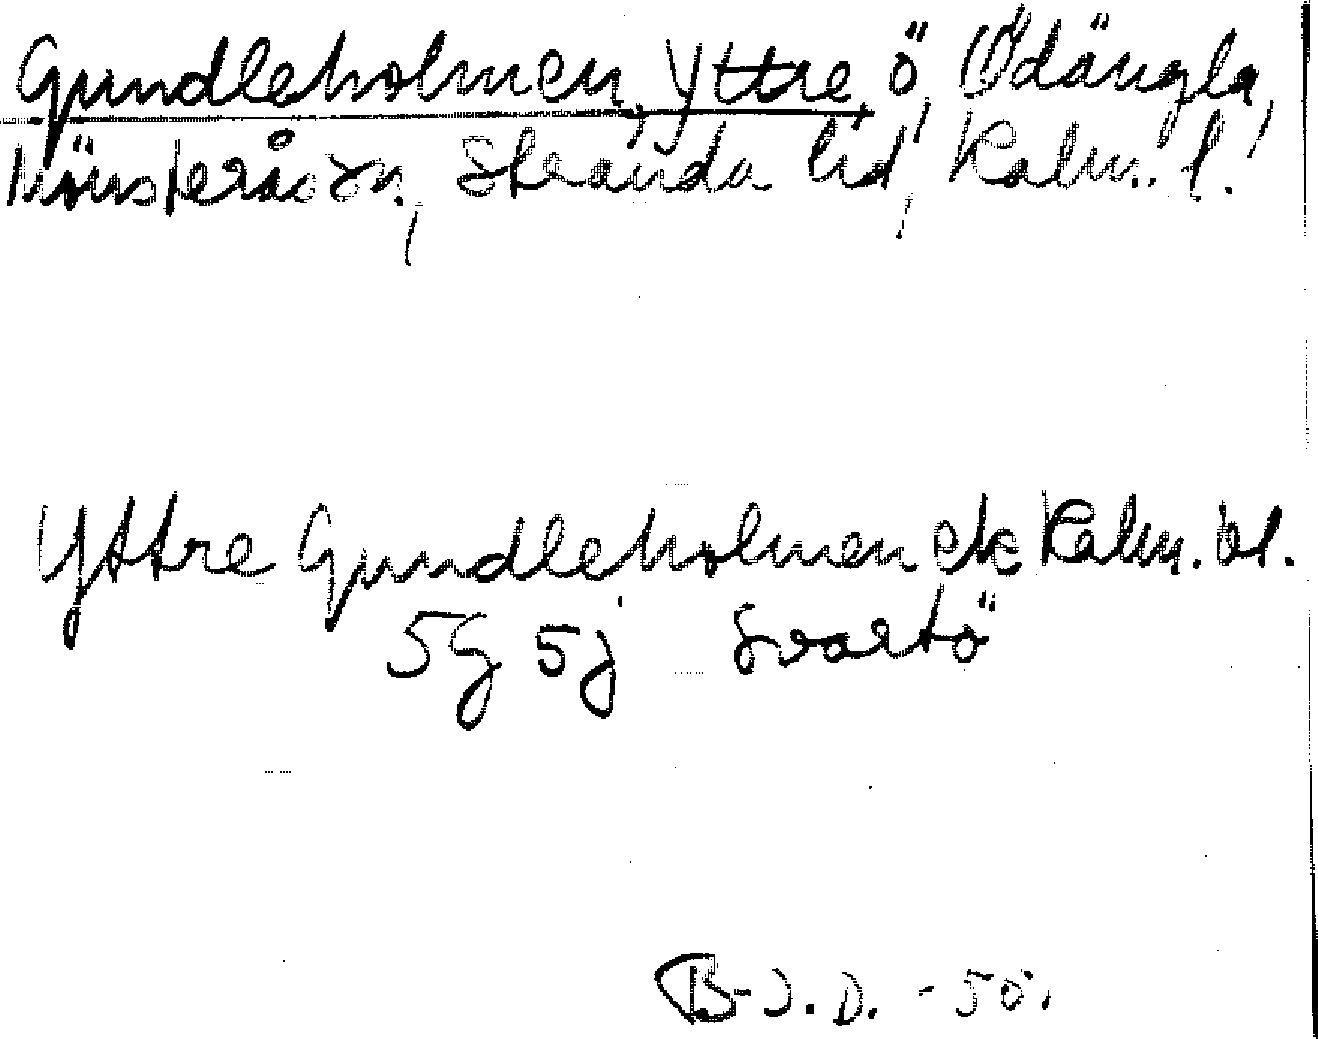 Gundleholmen, Yttre, ö, Ödängla,
Mönsterås sn, Stranda hd, Kalm. l.
Yttre Gundleholmen ek Kalm. bl.
5g 5j Svartö
B-J. D. -50.